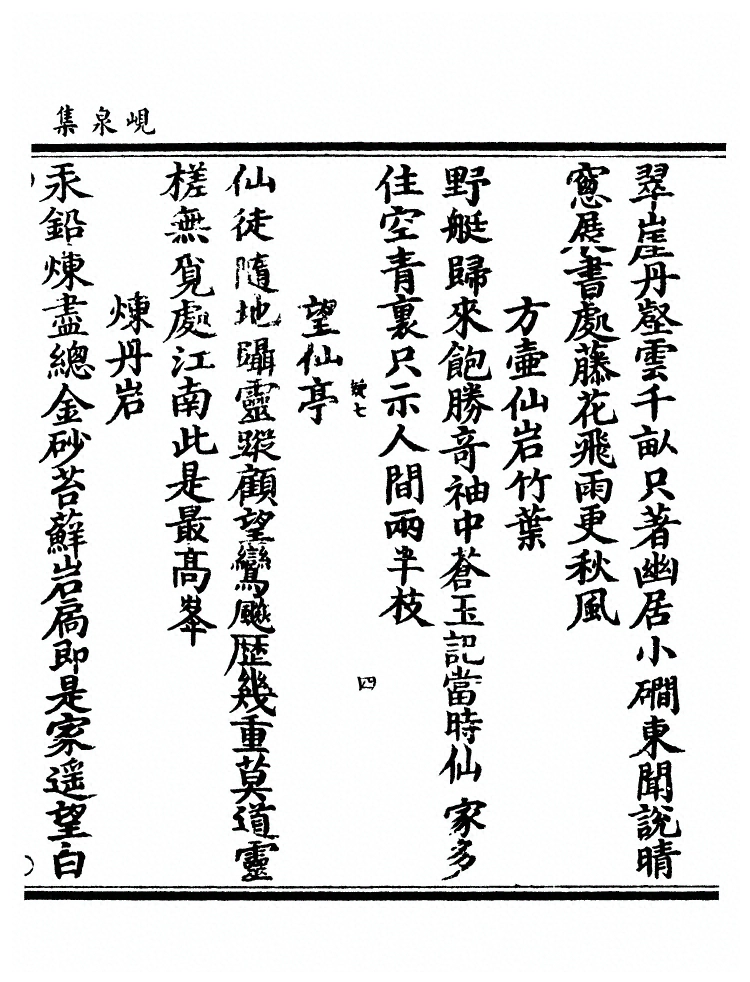 峴泉集
翠崖丹壑雲千畝只著幽居小磵東聞說晴
窻展書處藤花飛雨更秋風
方壺仙岩竹葉
野艇歸來飽勝竒袖中蒼玉記當時仙家多
住空青裏只示人間兩半枝
四
望仙亭
仙徒隨地躡靈蹤顧望鸞飇歷幾重莫道靈
槎無覓處江南此是最髙峯
煉丹岩
汞鉛煉盡總金砂苔蘚岩扃即是家遥望白